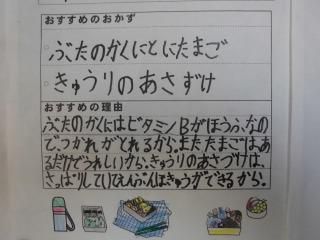 おすすめのおかず
ぶたのかくにとにたまご
きゅうりのあさずけ
おすすめの理由
ぶたのかくにはビタミンBがほうふなの
でつかれがとれるから。またたまごは、あ
るだけでうれしいから。きゅうりのあさづけは、
さっぱりしていてえんぶんほきゅうができるから。